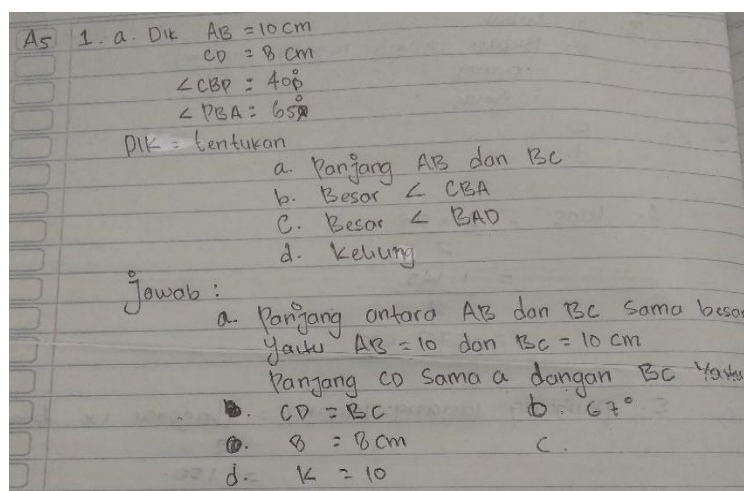 A5 1. a. Dik AB = 10 cm
CD = 8 cm
∠CBD = 40°
∠DBA = 65°
DIK = tentukan
a. Panjang AB dan BC
b. Besar ∠ CBA
c. Besar ∠ BAD
d. Keliung
Jawab :
a. Panjang antara AB dan BC Sama besar
Yaitu AB = 10 dan BC = 10 cm
Panjang CD Sama a dangan BC Yaitu
b. CD = BC b. 67°
c. 8 = 8 cm c.
d. K = 10